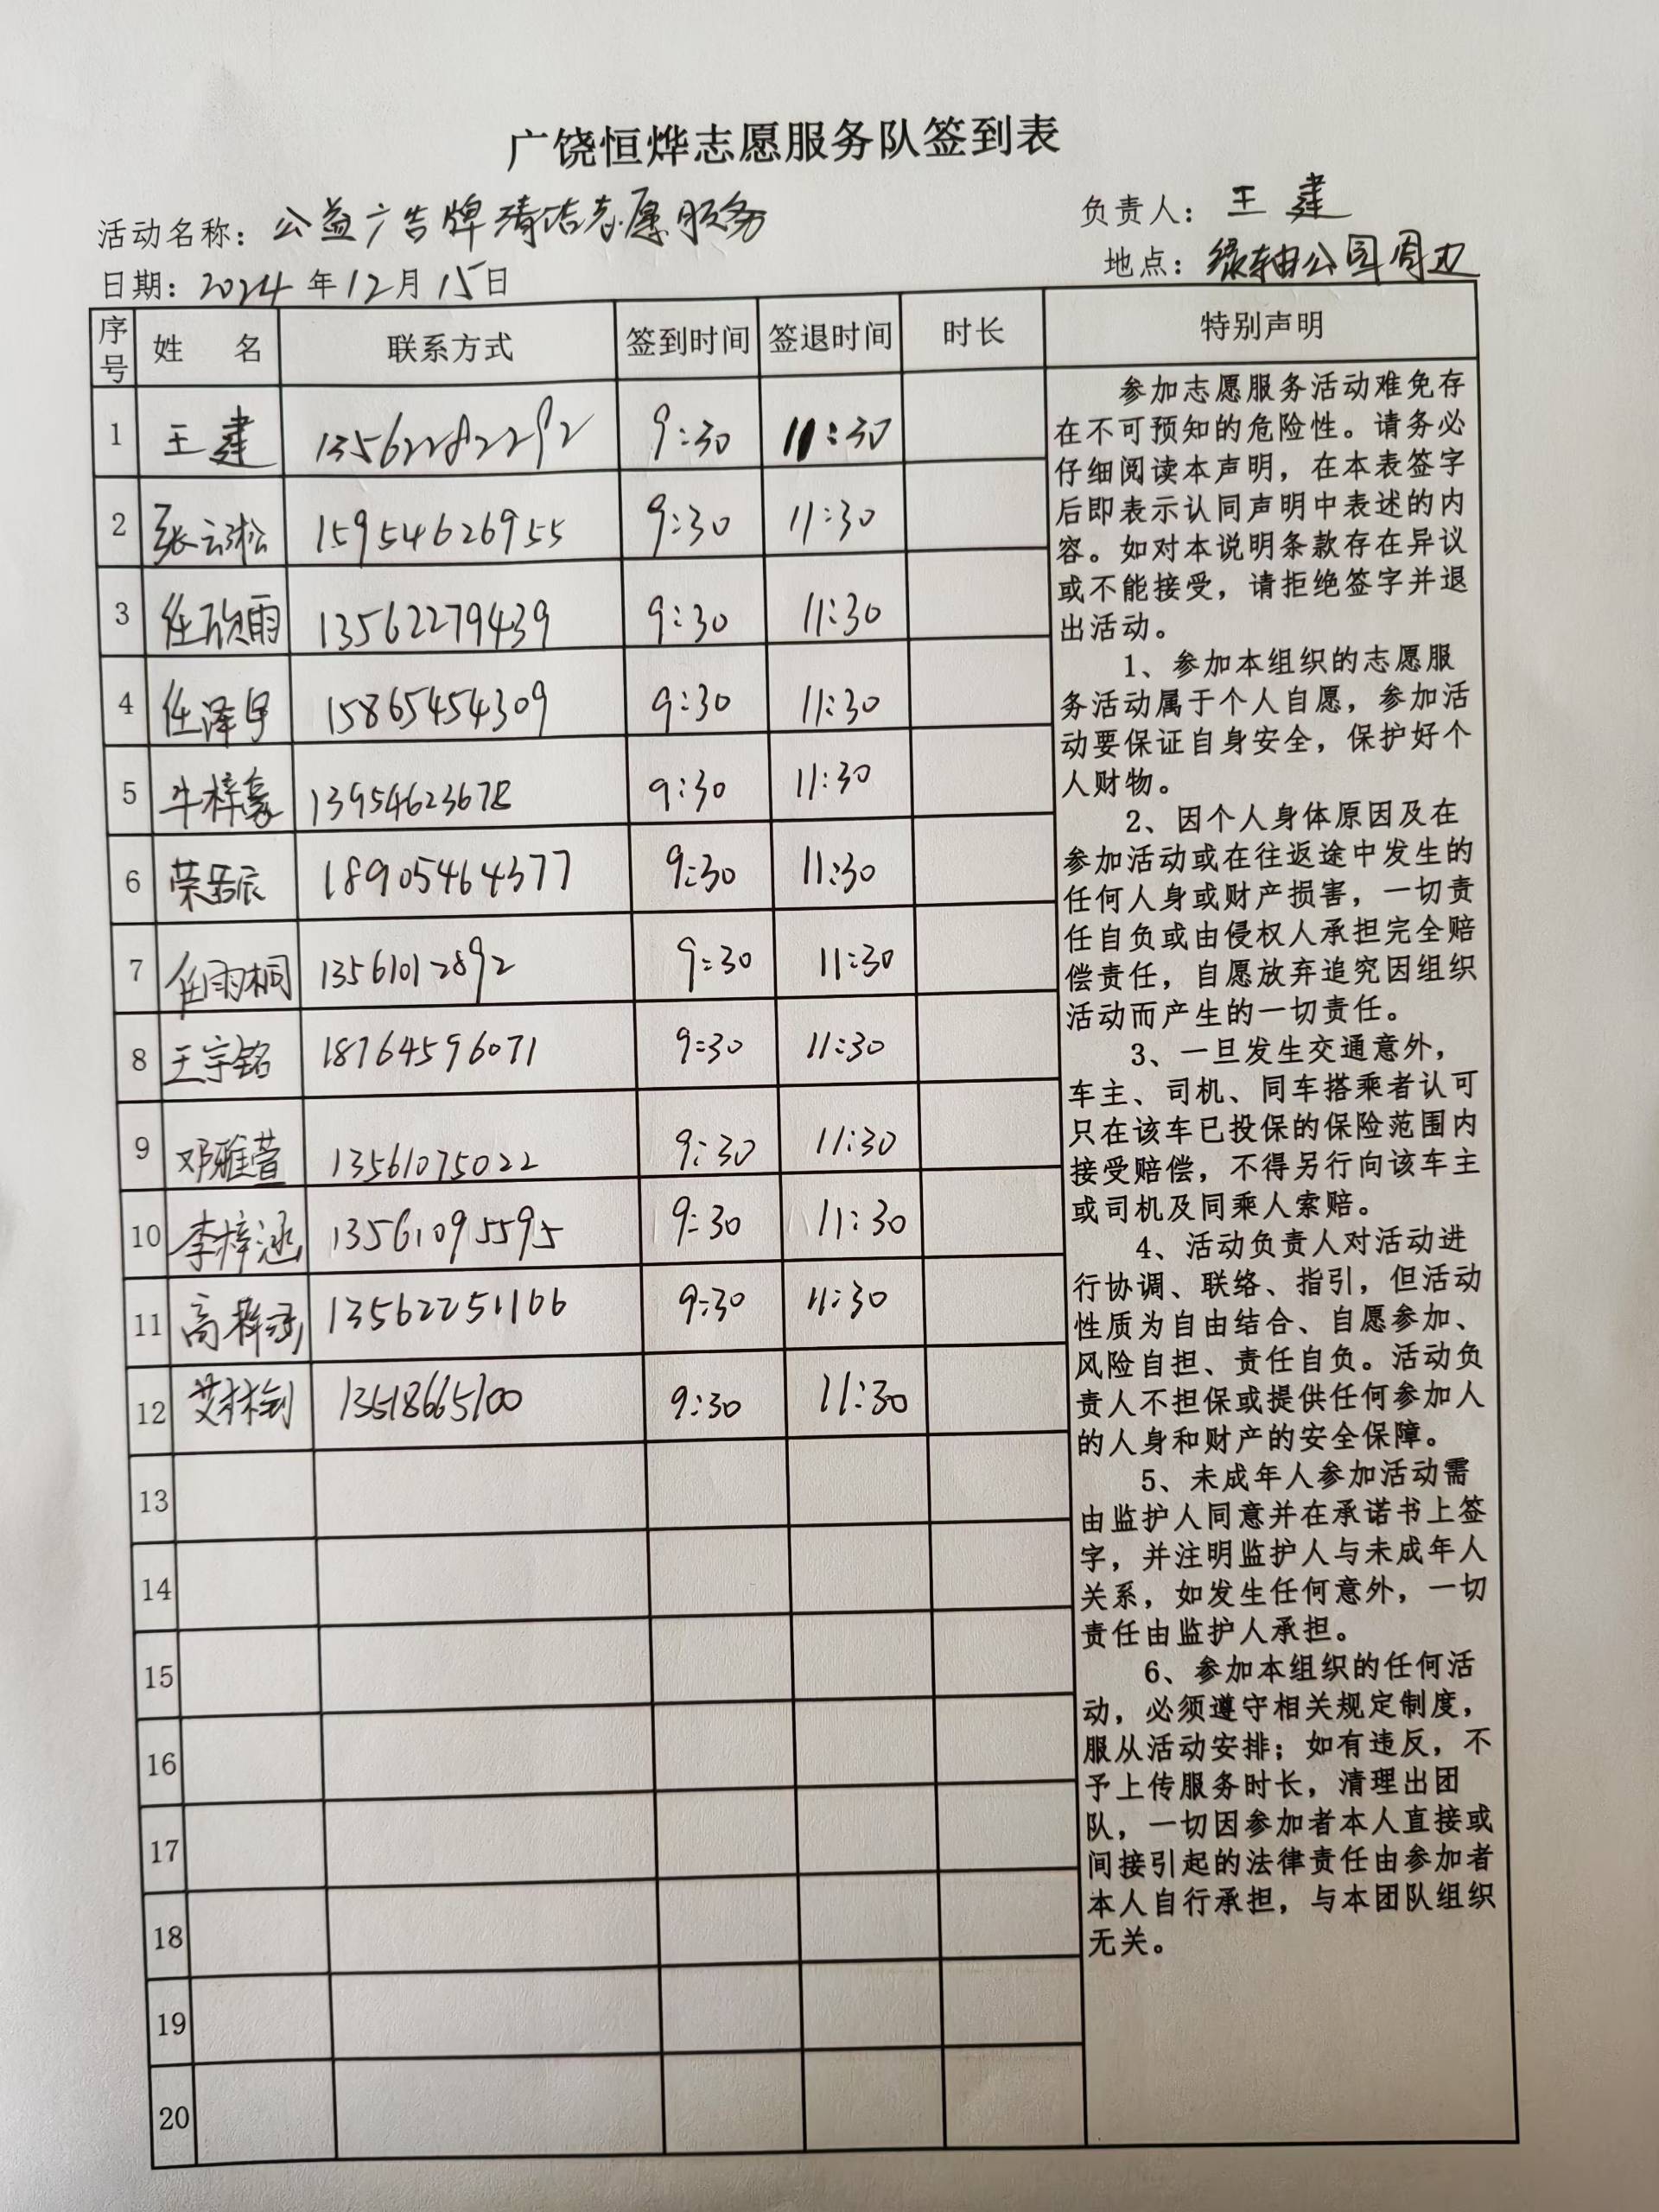 广饶恒烨志愿服务队签到表
活动名称：公益广告牌清洁志愿服务 负责人：王建
日期：2024年12月15日 地点：绿轴公园周边
序号 姓名 联系方式 签到时间 签退时间 时长 特别声明
1 王建 13562282292 9:30 11:30
2 张云淞 15954626955 9:30 11:30
3 任欣雨 13562279439 9:30 11:30
4 任泽宇 15865454309 9:30 11:30
5 牛梓豪 13954623678 9:30 11:30
6 荣 辰 18905464377 9:30 11:30
7 任雨桐 13561012892 9:30 11:30
8 王宇铭 18764596071 9:30 11:30
9 邓雅萱 13561075022 9:30 11:30
10 李梓涵 13561095595 9:30 11:30
11 高梓涵 13562251166 9:30 11:30
12 艾林 9:30 11:30
13
14
15
16
17
18
19
20
参加志愿服务活动难免存
在不可预知的危险性。请务必
仔细阅读本声明，在本表签字
后即表示认同声明中表述的内
容。如对本说明条款存在异议
或不能接受，请拒绝签字并退
出活动。
1、参加本组织的志愿服
务活动属于个人自愿，参加活
动要保证自身安全，保护好个
人财物。
2、因个人身体原因及在
参加活动或在往返途中发生的
任何人身或财产损害，一切责
任自负或由侵权人承担完全赔
偿责任，自愿放弃追究因组织
活动而产生的一切责任。
3、一旦发生交通意外，
车主、司机、同车搭乘者认可
只在该车已投保的保险范围内
接受赔偿，不得另行向该车主
或司机及同乘人索赔。
4、活动负责人对活动进
行协调、联络、指引，但活动
性质为自由结合、自愿参加、
风险自担、责任自负。活动负
责人不担保或提供任何参加人
的人身和财产的安全保障。
5、未成年人参加活动需
由监护人同意并在承诺书上签
字，并注明监护人与未成年人
关系，如发生任何意外，一切
责任由监护人承担。
6、参加本组织的任何活
动，必须遵守相关规定制度，
服从活动安排；如有违反，不
予上传服务时长，清理出团
队，一切因参加者本人直接或
间接引起的法律责任由参加者
本人自行承担，与本团队组织
无关。